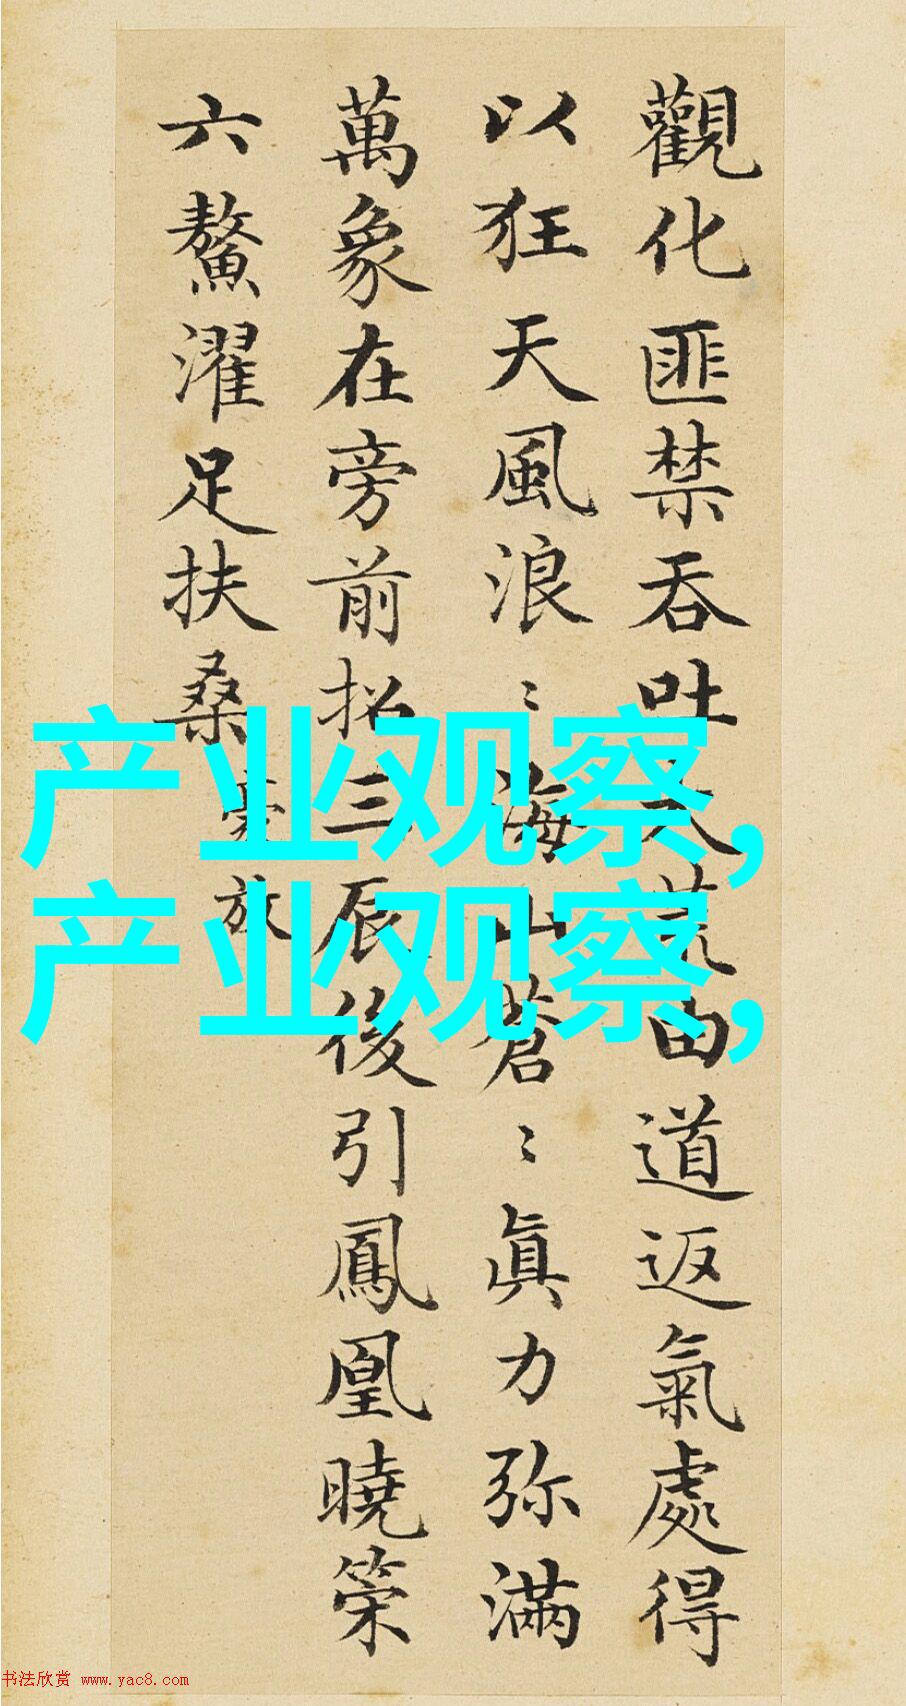 觀化匪禁吞吐大荒由道返氣處得
以狂天風浪〻海山蒼〻眞力弥滿
萬象在旁前招三辰後引鳳凰曉策
六鰲濯足扶桑
豪放
产业观察,
产业观察,
书法欣赏 www.yac8.com